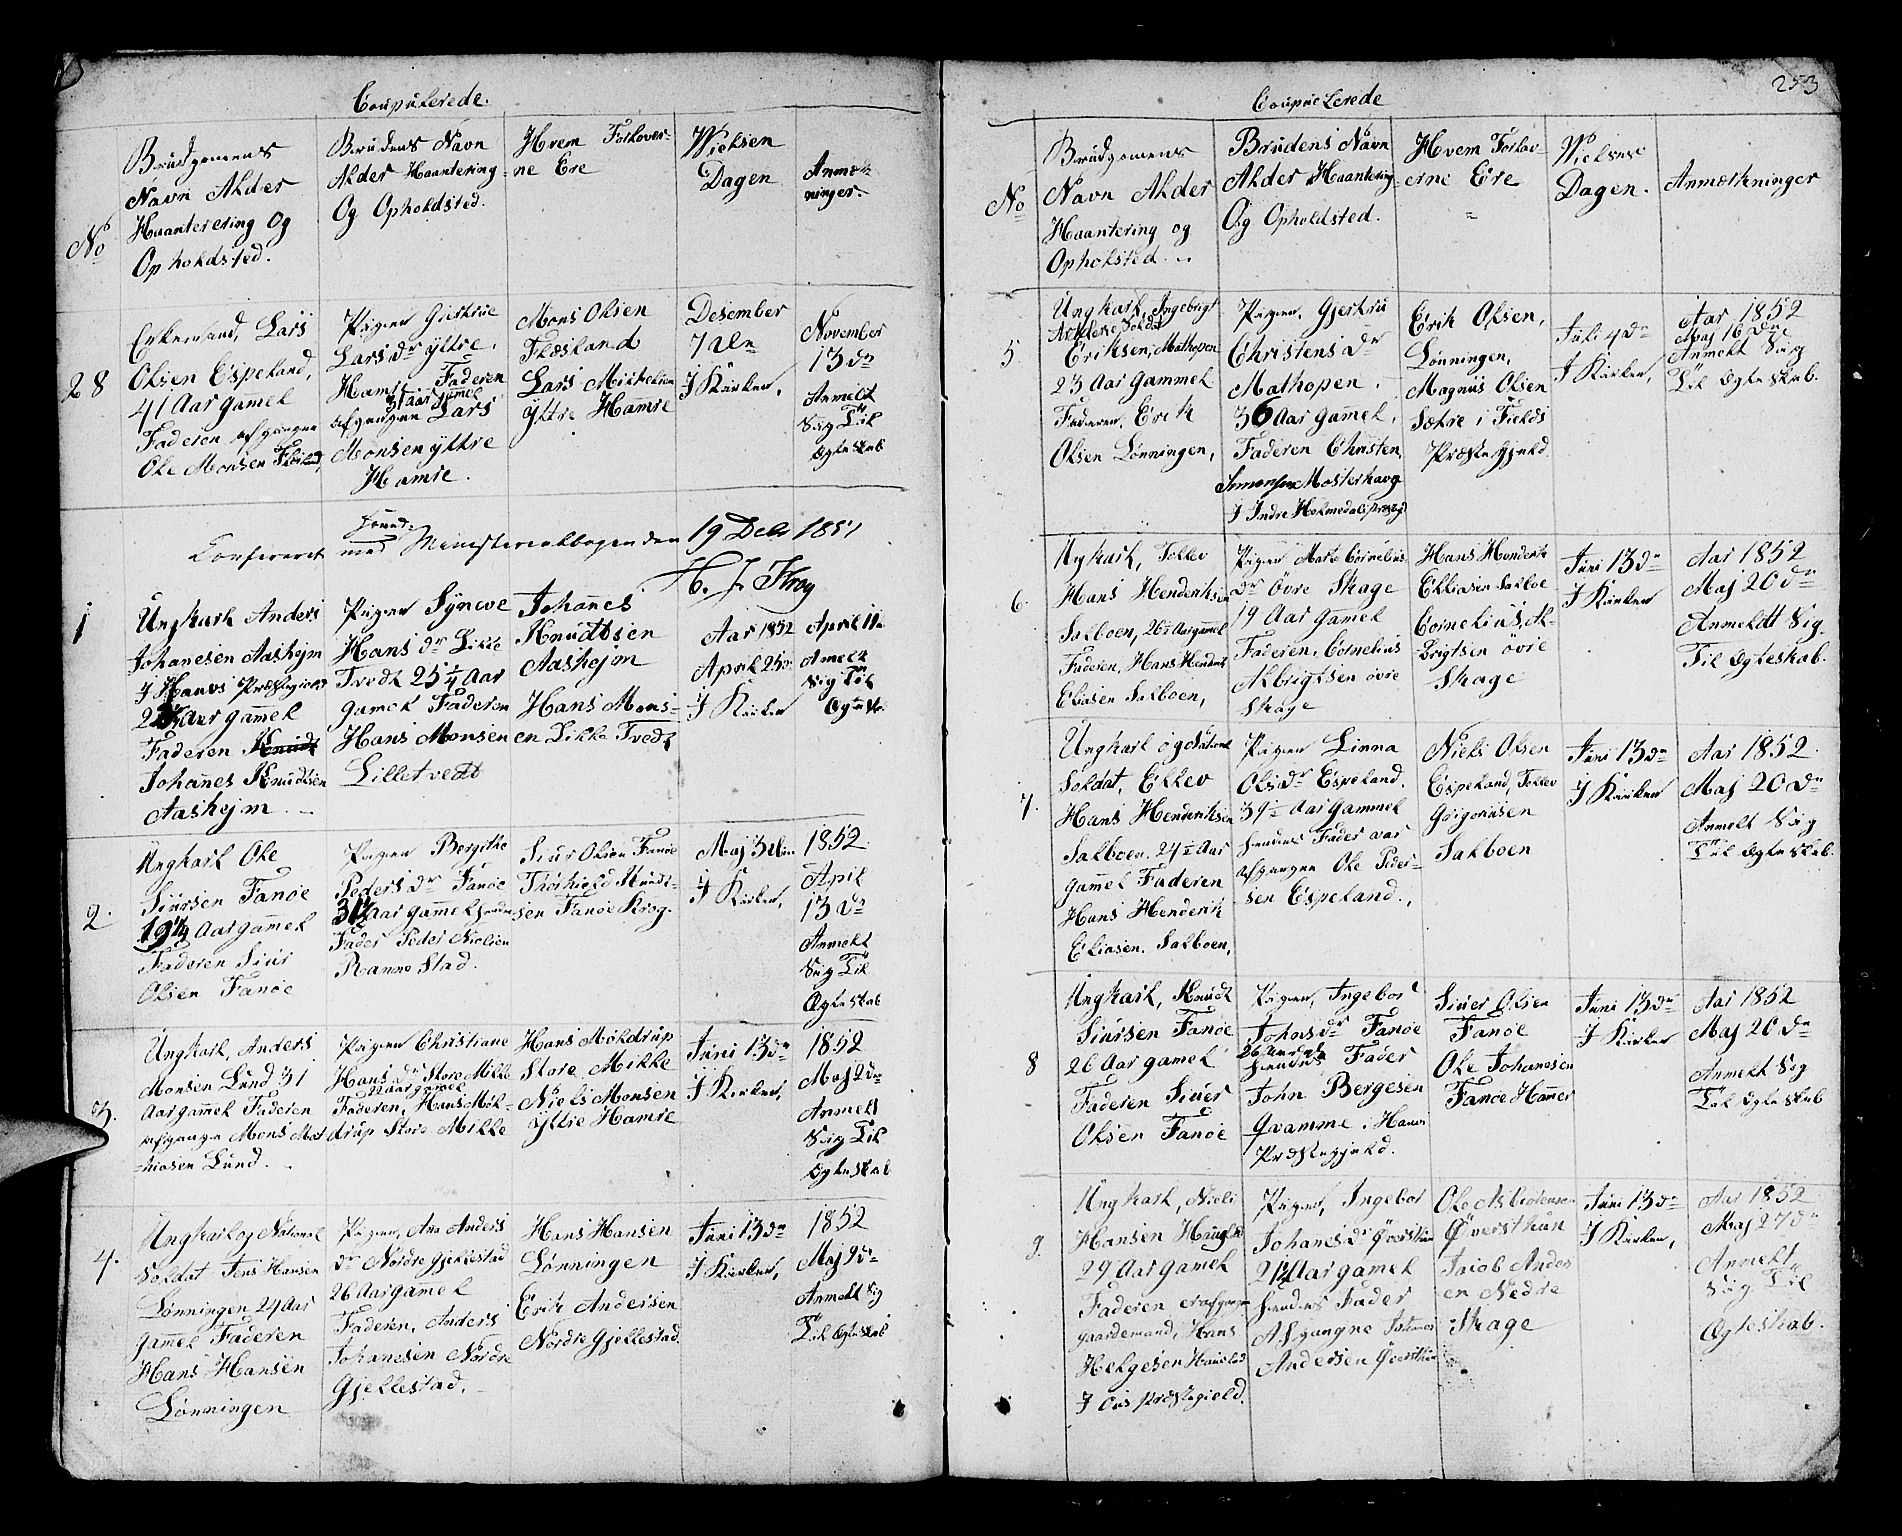 Coupulerede.
No
Brudgomens
Navn Alder
Haanterering og
Opholdsted.
Brudens Navn
Alder Haantering
Og Opholdsted.
Hvem Forlover-
ne Ere
Vielsen
Dagen
Anmærk
ninger.
28
Enkemand, Lars
Olsen Espeland,
41 Aar gamel
Faderen afgangen
Ole Monsen
Pigen Giertrue
Lars dr ytre
Hamre Faderen
31 aar gamel
afgangen Lars
Monsen yttre
Hamre.
Mons Olsen
Flæsland
Lars Mikkelsen
Yttre Hamre
Desember
7 den
I Kirken,
November
13 dn
Anmelt
Sig Til
Ægte skab
Confereret med Ministerialbogen den 19 Decbr 1851
H. J. Krog
1
Ungkarl Anders
Johanesen Aashejm
I Hauvs Præstegield
Aar gamel
Faderen Knudt
Johannes Knudtsen
Aashejm.
Pigen Syneve
Hans dr Lille
Tvedt 25 1/4 Aar
gamel Faderen
Hans Monsen
Lilletvedt
Johanes
Knudtsen
Aashejm
Hans Mons-
en Lille Tvedt
Aar 1852
April 25
I Kirken
April 11
Amelt
Sig Til
Ægte
2.
Ungkarl Ole
Siursen Fanøe
19 1/4 Aar gamel
Faderen Siur
Olsen Fanøe
Pigen Bergithe
Peders dr Fanøe
31 1/2 Aar gamel hendes
Fader Peder Nielsen
Ramne Stad.
Siur Olsen Fanøe
Thorkield Knudt-
sen Fanøe Krog.
Maj 31
I Kirken,
1852
April
13 dn
Anmelt
Sig Til
Ægte skab
3.
Ungkarl, Anders
Monsen Lund 31
Aar gammel Faderen
afgangen Mons Mat
hiasen Lund.
Pigen Christiane
Hans dr Store Milde
Aar gamel
Faderen, Hans Møl-
drup Store Milde
Hans Møldrup
Store Milde
Niels Monsen
Yttre Hamre
Juni 13 dn
I Kirken,
1852
Maj 2 dn
Anmelt
Sig Til
Ægte skab
4.
Ungkarl og National
Soldat Jens Hansen
Lønningen 24 Aar
gammel Faderen
Hans Hansen
Lønningen
Pigen, Ana Anders
dr Nordre Gjellestad
26 Aar gamel
Faderen, Anders
Johanesen Nordre
Gjellestad.
Hans Hansen
Lønningen
Erik Andersen
Nordre Gjellestad
Juni 13 dn
I Kirken,
1852
Maj 9 dn
Anmelt Sig
Til Ægte skab
253
Coupulerede
No
Brudgomens
Navn Alder
Haantering og
Opholsted.
Brudens Navn
Alder Haantering
Og Opholdsted.
Hvem Forlov-
erne Ere
Vielses
Dagen.
Anmærkninger
5.
Ungkarl, Ingebrigt
Eriksen, Mathopen
23 Aar gammel
Faderen, Erik
Olsen Lønningen,
Pigen, Gjertru
Christens dr
Mathopen.
36 Aar gamel,
Faderen Christen
Simonsen Mosterhavg
I Indre Holmedals
Erik Olsen,
Lønningen,
Magnus Olsen
Sætre i Fields
Præste gjeld
Juli 4 dn
I Kirken,
Aar 1852
Maj 16 dn
Anmelt Sig
Til Ægte skab.
6.
Ungkarl, Tollev
Hans Hendriksen
Salboen, 26 Aar gamel
Faderen, Hans Hendrik
Eliasen Salboen,
Pigen Marte Cornelius
dr Øvre Skage
19 Aar gamel
Faderen, Cornelius
Albrigtsen øvre
Skage
Hans Hendrik
Elliasen Salboe
Cornelius, Al-
brigtsen øvre
Skage
Juni 13 dn
I Kirken
Aar 1852
Maj 20 dn
Anmeldt Sig
Til Ægteskab.
7.
Ungkarl og National
Soldat, Ellev
Hans Hendriksen
Salboen, 24 Aar
gammel Faderen
Hans Hendrik
Eliasen. Salboen,
Pigen Linna
Ols dr Espeland.
Aar gammel
hendes Fader var
afgangen Ole Peder-
sen Espeland.
Niels Olsen
Espeland, Tollev
Grigoriusen
Salboen
Juni 13 dn
I Kirken
Aar 1852.
Maj 20 dn
Anmelt Sig
Til Ægte skab.
8
Ungkarl, Knudt
Siursen Fanøe
26 Aar gamel
Faderen Siuer
Olsen Fanøe
Pigen, Ingebor
Johns dr Fanøe
hendes Fader
John Bergesen
Qvamme. Haus
Præstegjeld.
Siuer Olsen
Fanøe
Ole Johanesen
Fanøe Hammer
Juni 13 dn
I Kirken
Aar 1852
Maj 20 dn
Anmelt Sig
Til Ægte skab
9.
Ungkarl, Niels
Hansen Haugland
29 Aar gamel
Faderen er afgangen
gaardemand, Hans
Helgesen Haugland
I Ous Præstegield.
Pigen, Ingebor
Johanes dr Øversthun
21 1/2 Aar gamel
hendes Fader
Afgangne Johanes
Andersen Øversthun
Ole Asbiørnsen
Øversthun
Jacob Anders
en Nedre
Skage
Juni 13 dn
I Kirken,
Aar 1852
Maj 27 dn
Anmelt
Sig Til
Ægteskab.